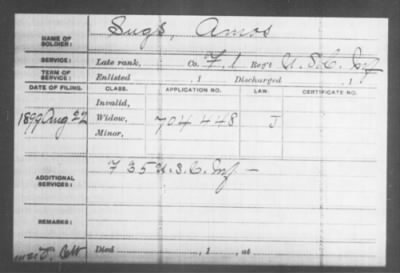 NAME OF SOLDIER: Sugs, Amos
SERVICE: Late rank, Co. F, 1 Reg't U.S.C. Inf
TERM OF SERVICE: Enlisted , 1 Discharged , 1
DATE OF FILING. CLASS. APPLICATION NO. LAW. CERTIFICATE NO.
Invalid,
1899 Aug 22 Widow, 704448 J
Minor,
ADDITIONAL SERVICES: F 35 U.S.C. Inf –
REMARKS:
Died , 1 , at